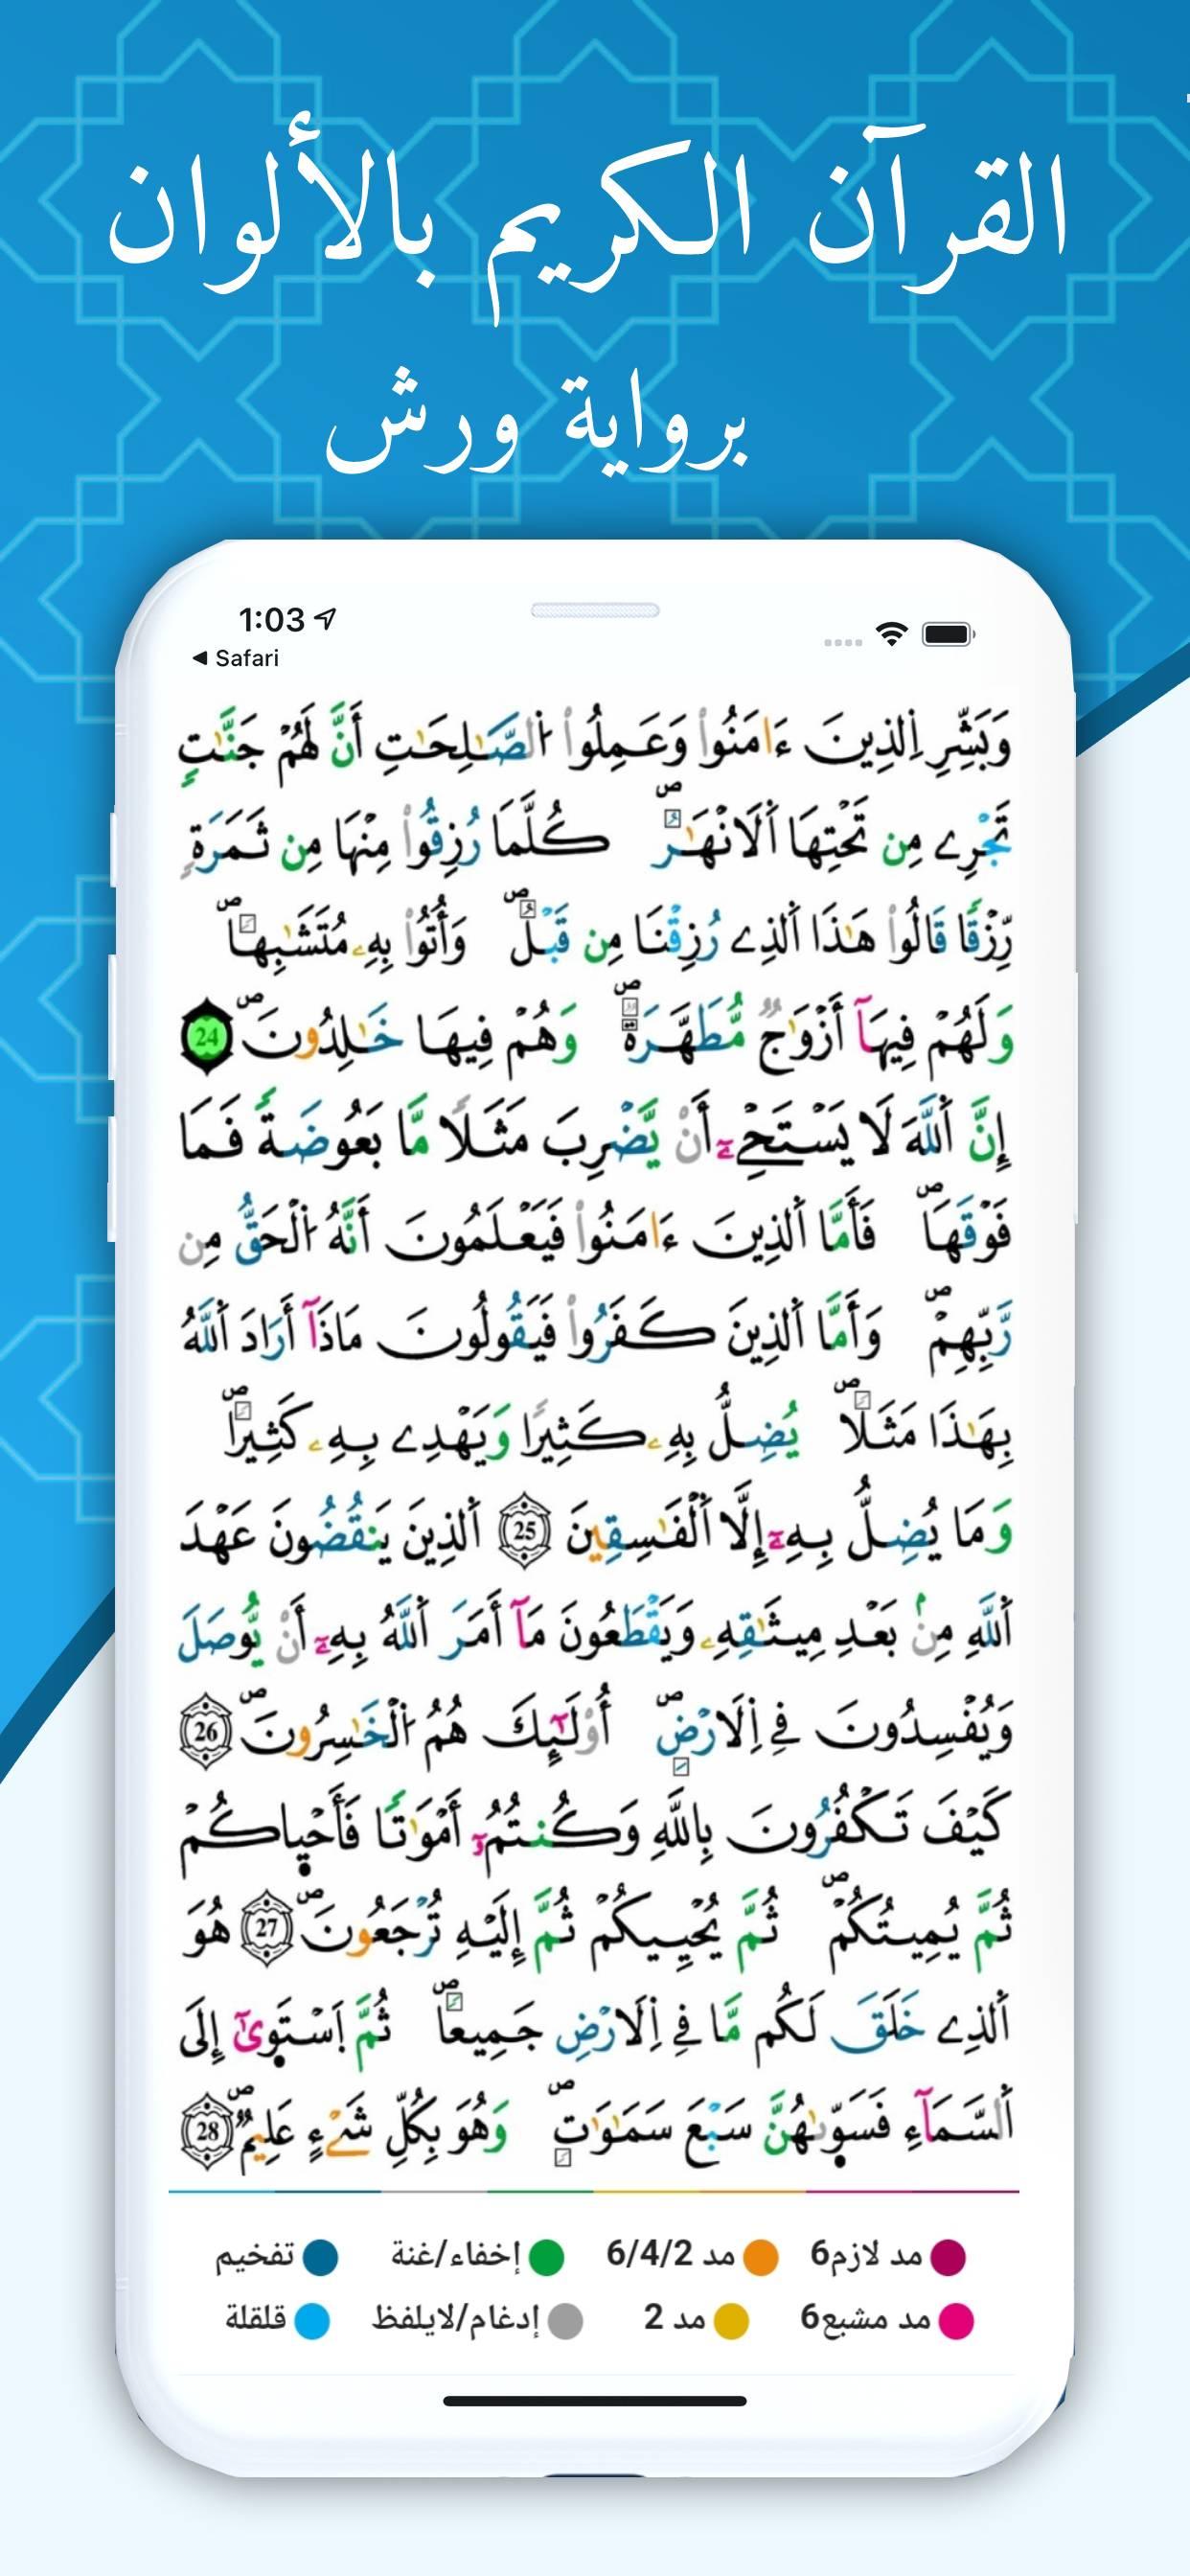 القرآن الكريم بالألوان
برواية ورش
1:03
◀ Safari
وَبَشِّرِ اِ۬لذِينَ ءَامَنُواْ وَعَمِلُواْ اُ۬لصَّٰلِحَٰتِ أَنَّ لَهُمْ جَنَّٰتٖ
تَجْرِے مِن تَحْتِهَا اَ۬لَانْهَٰرُۖ كُلَّمَا رُزِقُواْ مِنْهَا مِن ثَمَرَةٖ
رِّزْقاٗ قَالُواْ هَٰذَا اَ۬لذِے رُزِقْنَا مِن قَبْلُۖ وَأُتُواْ بِهِۦ مُتَشَٰبِهاٗۖ
وَلَهُمْ فِيهَآ أَزْوَٰجٞ مُّطَهَّرَةٞۖ وَهُمْ فِيهَا خَٰلِدُونَۖ 24
إِنَّ اَ۬للَّهَ لَا يَسْتَحْيِۦٓ أَنْ يَّضْرِبَ مَثَلاٗ مَّا بَعُوضَةٗ فَمَا
فَوْقَهَاۖ فَأَمَّا اَ۬لذِينَ ءَامَنُواْ فَيَعْلَمُونَ أَنَّهُ اُ۬لْحَقُّ مِن
رَّبِّهِمْۖ وَأَمَّا اَ۬لذِينَ كَفَرُواْ فَيَقُولُونَ مَاذَآ أَرَادَ اَ۬للَّهُ
بِهَٰذَا مَثَلاٗۖ يُضِلُّ بِهِۦ كَثِيراٗ وَيَهْدِے بِهِۦ كَثِيراٗۖ
وَمَا يُضِلُّ بِهِۦٓ إِلَّا اَ۬لْفَٰسِقِينَ 25 اَ۬لذِينَ يَنقُضُونَ عَهْدَ
اَ۬للَّهِ مِنۢ بَعْدِ مِيثَٰقِهِۦ وَيَقْطَعُونَ مَآ أَمَرَ اَ۬للَّهُ بِهِۦٓ أَنْ يُّوصَلَ
وَيُفْسِدُونَ فِے اِ۬لَارْضِۖ أُوْلَٰٓئِكَ هُمُ اُ۬لْخَٰسِرُونَۖ 26
كَيْفَ تَكْفُرُونَ بِاللَّهِ وَكُنتُمُۥٓ أَمْوَٰتاٗ فَأَحْيٜاكُمْ
ثُمَّ يُمِيتُكُمْۖ ثُمَّ يُحْيِيكُمْ ثُمَّ إِلَيْهِ تُرْجَعُونَۖ 27 هُوَ
اَ۬لذِے خَلَقَ لَكُم مَّا فِے اِ۬لَارْضِ جَمِيعاٗۖ ثُمَّ اَ۪سْتَو۪ىٰٓ إِلَى
اَ۬لسَّمَآءِ فَسَوّ۪ىٰهُنَّ سَبْعَ سَمَٰوَٰتٖۖ وَهُوَ بِكُلِّ شَےْءٍ عَلِيمٞۖ 28
مد لازم6 مد 6/4/2 إخفاء/غنة تفخيم
مد مشبع6 مد 2 إدغام/لايلفظ قلقلة